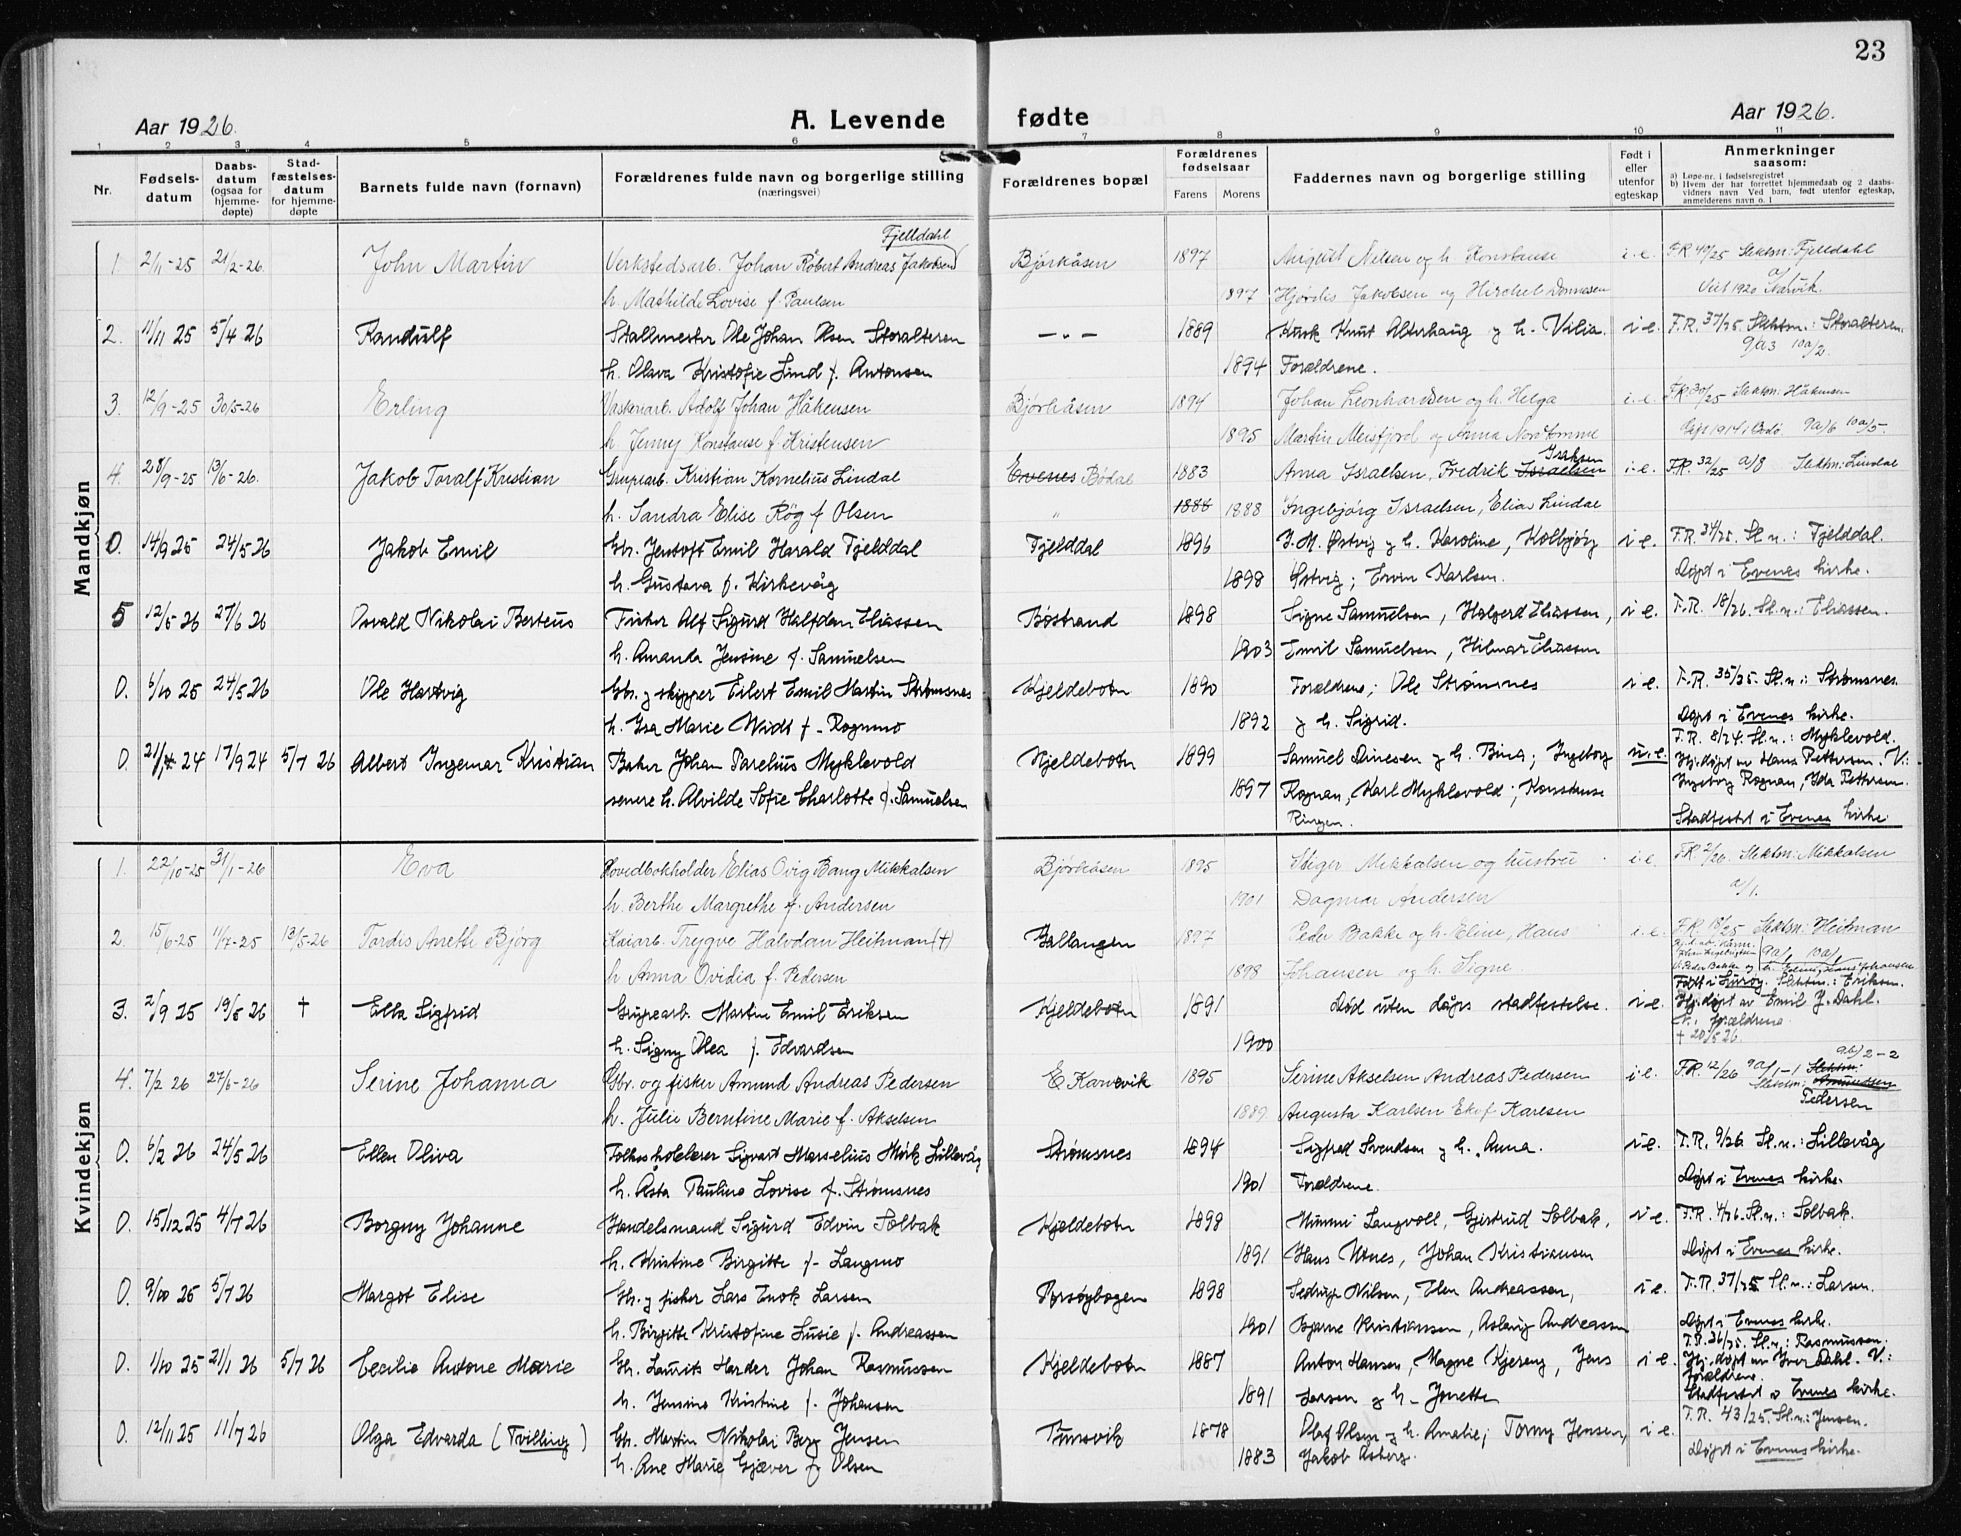 23
Aar 1926.
A. Levende fødte
Aar 1926.
1 2 3 4 5 6 7 8 9 10 11
Nr.
Fødselsdatum
Daabsdatum (ogsaa for hjemmedøpte)
Stadfæstelsesdatum for hjemmedøpte
Barnets fulde navn (fornavn)
Forældrenes fulde navn og borgerlige stilling (næringsvei)
Forældrenes bopæl
Forældrenes fødselsaar
Farens Morens
Faddernes navn og borgerlige stilling
Født i eller utenfor egteskap
Anmerkninger saasom:
a) Løpe-nr. i fødselsregistret
b) Hvem der har forrettet hjemmedaab og 2 daabsvidners navn Ved barn, født utenfor egteskap, anmelderens navn o. l
Mandkjøn
Fjelldahl
1. 2/11-25 21/2-26. John Martin Verkstedsarb. Johan Robert Andreas Jakobsen Bjørkåsen 1897 August Nilsen og h. Konstanse i.e. F.R 49/25 Slektsn: Fjelldahl
h. Mathilde Lovise f. Paulsen 1897 Hjørdis Jakobsen og Hirchel Viet 1920 Narvik.
2. 11/11 25 5/4 26 Randulf Stallmester Ole Johan Olsen Storalteren —„— 1889 Kusk Knut Alterhaug og h. Vilia. i e. F.R. 37/25. Slektsn: Storalteren.
h. Olava Kristofie Lind f. Antonsen 1894 Forældrene. 9a3 10a/2.
3. 12/9-25 30/5-26 Erling Vaskeriarb. Adolf Johan Håkensen Bjørkåsen 1894 Johan Leonhardsen og h. Helga i.e. F.R 30/25 Slektsn: Håkensen
h. Jenny Konstanse f. Kristensen 1895 Martin Meisfjord og Anna 9a/6 10a/5.
4. 28/9-25 13/6-26. Jakob Toralf Kristian Grupearb. Kristian Kornelius Lindal Evenes Bødal 1883 Anna Israelsen, Fredrik Israelsen Isaksen i-e. F.R. 32/25 a/8 Slektsn: Lindal
h. Sandra Elise Røg f Olsen „ 1884 1888 Ingebjørg Israelsen, Elias Lindal
0. 14/9 25 24/5 26 Jakob Emil Gbr. Jentoft Emil Harald Fjelddal Fjelddal 1896 J. M. Østvig og h. Karoline, Kolbjørg i e. F.R. 34/25. Sl. n.: Fjelddal.
h. Gustava f. Kirkevåg 1898 Østvig; Erwin Karlsen. Døpt i Evenes kirke.
5 12/5 26 27/6 26 Osvald Nikolai Berteus Fisker Alf Sigurd Halfdan Eliassen Bøstrand 1898 Signe Samuelsen, Halgerd Eliassen, i e. F.R. 18/26. Sl. n.: Eliassen.
h. Amanda Jensine f. Samuelsen 1903 Emil Samuelsen, Hilmar Eliassen
0. 6/10 25 24/5 26 Ole Hartvig Gbr. og skipper Eilert Emil Martin Strømsnes Kjeldebotn 1890 Forældrene; Ole Strømsnes i e. F.R. 35/25. Sl. n.: Strømsnes.
h. Isa Marie Widt f. Rognmo 1892 og h. Sigrid. Døpt i Evenes kirke.
0. 21/4 24 17/9 24 5/7 26 Albert Ingemar Kristian Baker Johan Parelius Myklevold Kjeldebotn 1899 Samuel Dinesen og h. Bina; Ingeborg u.e. F.R. 8/24. Sl. n.: Myklevold.
Hj. døpt av Hans Pettersen. V:
senere h. Alvilde Sofie Charlotte f. Samuelsen 1897 Rognan, Karl Myklevold; Konstanse Ingeborg Rognan, Ida Pettersen.
Ringen. Stadfestet i Evenes kirke.
Kvindekjøn
1. 22/10-25 31/1-26 Eva Hovedbokholder Elias Ovig Bang Mikkalsen Bjørkåsen 1895 Stiger Mikkalsen og hustru i.e. F.R. 2/26. Slektsn: Mikkalsen
h. Berthe Margrethe f. Andersen 1901 Dagmar Andersen a/1.
2. 15/6-25 11/7-25 13/5-26 Tordis Anette Bjørg Kaiarb. Trygve Halvdan Heitman (†) Gallangen 1897 Peder Bakke og h. Eline, Hans i.e. F.R. 18/25 Slektsn: Heitman
h Anna Ovidia f. Pedersen 1898 Johansen og h. Signe. 9a/1 10a/1
3. 2/9 25 19/5 26 † Ella Sigfrid Grupearb. Martin Emil Eriksen Kjeldebotn 1891 Død uten dåps stadfestelse. i e. Slektsn.: Eriksen.
Hj. døpt av Emil J. Dahl.
V: forældrene.
h. Signy Olea f. Edvardsen 1900 † 20/5 26.
4. 7/2 26 27/6-26 Serine Johanna Gbr. og fisker Amund Andreas Pedersen E Kanevik 1895 Serine Akselsen Andreas Pedersen i e. F.R. 12/26 9a/1-1 9b/2-2 Slektsn: Slektsn: Amundsen
h. Julie Berntine Marie f. Akselsen 1889 Augusta Karlsen Pedersen
0. 6/2 26 24/5 26 Ellen Oliva Folkeskolelærer Sigvart Marselius Mørk Lillevåg Strømsnes 1894 Sigfred Svendsen og h. Anna. i e. F.R. 9/26. Sl. n.: Lillevåg
h. Asta Pauline Lovise f. Strømsnes 1901 Forældrene. Døpt i Evenes kirke.
0. 15/12 25 4/7 26 Borgny Johanne Handelsmand Sigurd Edvin Solbak Kjeldebotn 1898 Mimmi Langvoll, Gjertrud Solbak, i e. F.R. 4/26. Sl. n.: Solbak.
h. Kristine Birgitte f. Langmo 1891 Hans Utnes, Johan Kristiansen Døpt i Evenes kirke.
0. 9/10 25 5/7 26 Margot Elise Gbr. og fisker Lars Enok Larsen 1898 Nilsen, Andreassen, i e. F.R. 37/25 Sl. n.: Larsen.
h. Birgitte Kristofine Lusie f. Andreassen 1901 Bjarne Kristiansen, Aslaug Andreassen Døpt i Evenes kirke.
0. 1/10 25 21/1 26 5/7 26 Cecilie Antone Marie Gbr. Laurits Harder Johan Rasmussen Kjeldebotn 1887 Anton Hansen, Magne Kjereng, Jens i e. F.R. 36/25. Sl. n.: Rasmussen.
Hj. døpt av Iver Dahl. V:
forældrene.
h. Jensine Kristine f. Johansen 1891 Larsen og h. Jonette Stadfestet i Evenes kirke.
0. 12/11 25 11/7 26 Olga Edvarda (Tvilling) Gbr. Martin Nikolai Berg Jensen 1878 Olaf Olsen og h. Amalie; Tormy Jensen, i e. F.R. 43/25. Sl. n.: Jensen.
h. Ane Marie Gjæver f. Olsen 1883 Jakob Døpt i Evenes kirke.